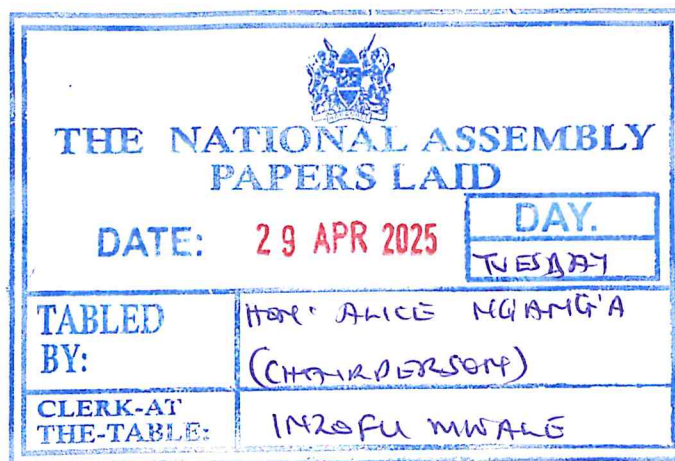 THE NATIONAL ASSEMBLY
PAPERS LAID
DATE: 29 APR 2025
DAY.
TUESDAY
TABLED
BY:
HON. ALICE NG'ANG'A
(CHAIRPERSON)
CLERK-AT
THE-TABLE:
INZOFU MWALE